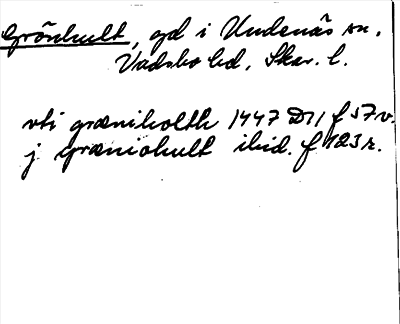 Grönhult, gd i Undenäs sn,
Vadsbo hd, Skar. l.
vti græniholth 1447 D 11 f 57 v.
j Græniohult ibid. f 123 r.